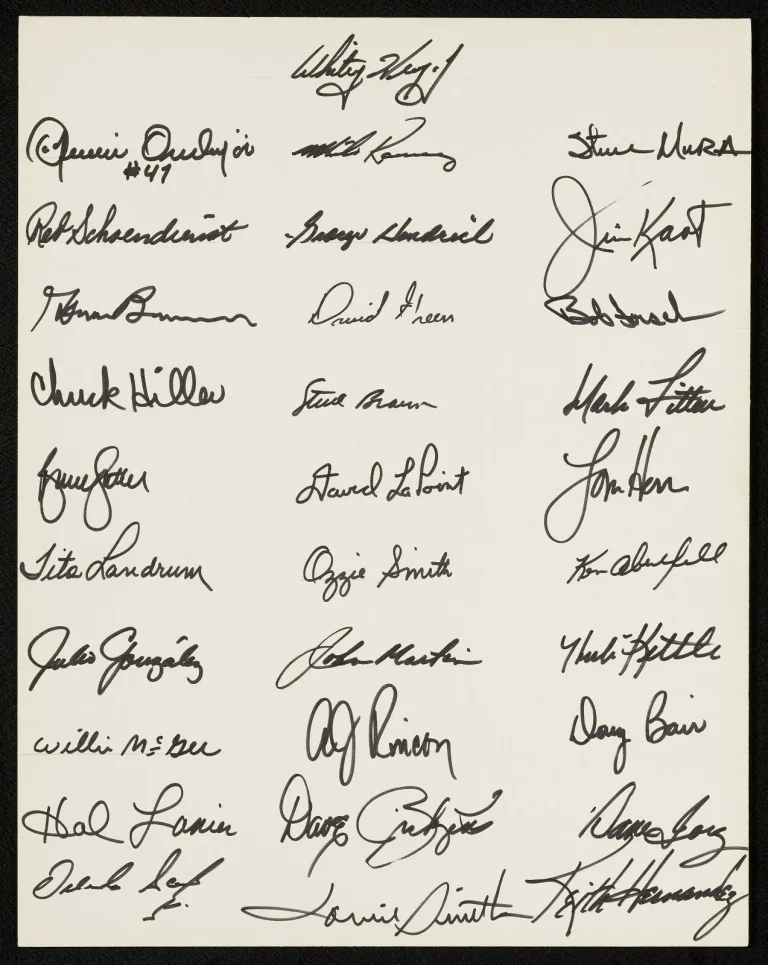 Whitey Herzog
Joaquin Andujar Mike Ramsey Steve Mura
#47
Red Schoendienst George Hendrick Jim Kaat
Glenn Brummer David Green Bob Forsch
Chuck Hiller Steve Braun Mark Littell
Bruce Sutter David LaPoint Tom Herr
Tito Landrum Ozzie Smith Ken Oberkfell
Julio González John Martin Hub Kittle
Willie McGee Andy Rincon Doug Bair
Hal Lanier Dave Ricketts Dane Iorg
Orlando Lonnie Smith Keith Hernandez